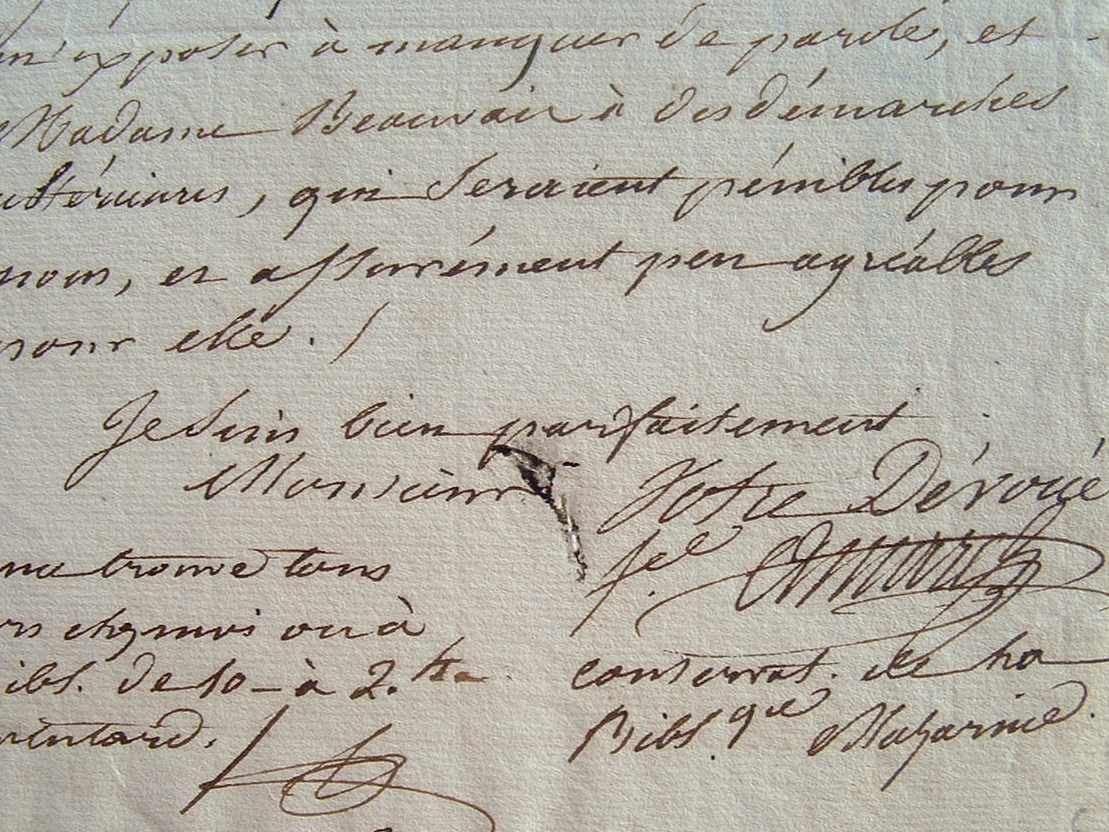 m'exposer à manquer de parole, et
Madame Beauvais à des démarches
ultérieures, qui seraient pénibles pour
nous, et assurément peu agréables
pour elle. /
Je suis bien parfaitement
Monsieur Votre Dévoué
me trouve tous
chez moi ou à
conservat. de la
bibl. de 10 - à 2. h.
Bibl.que Mazarine.